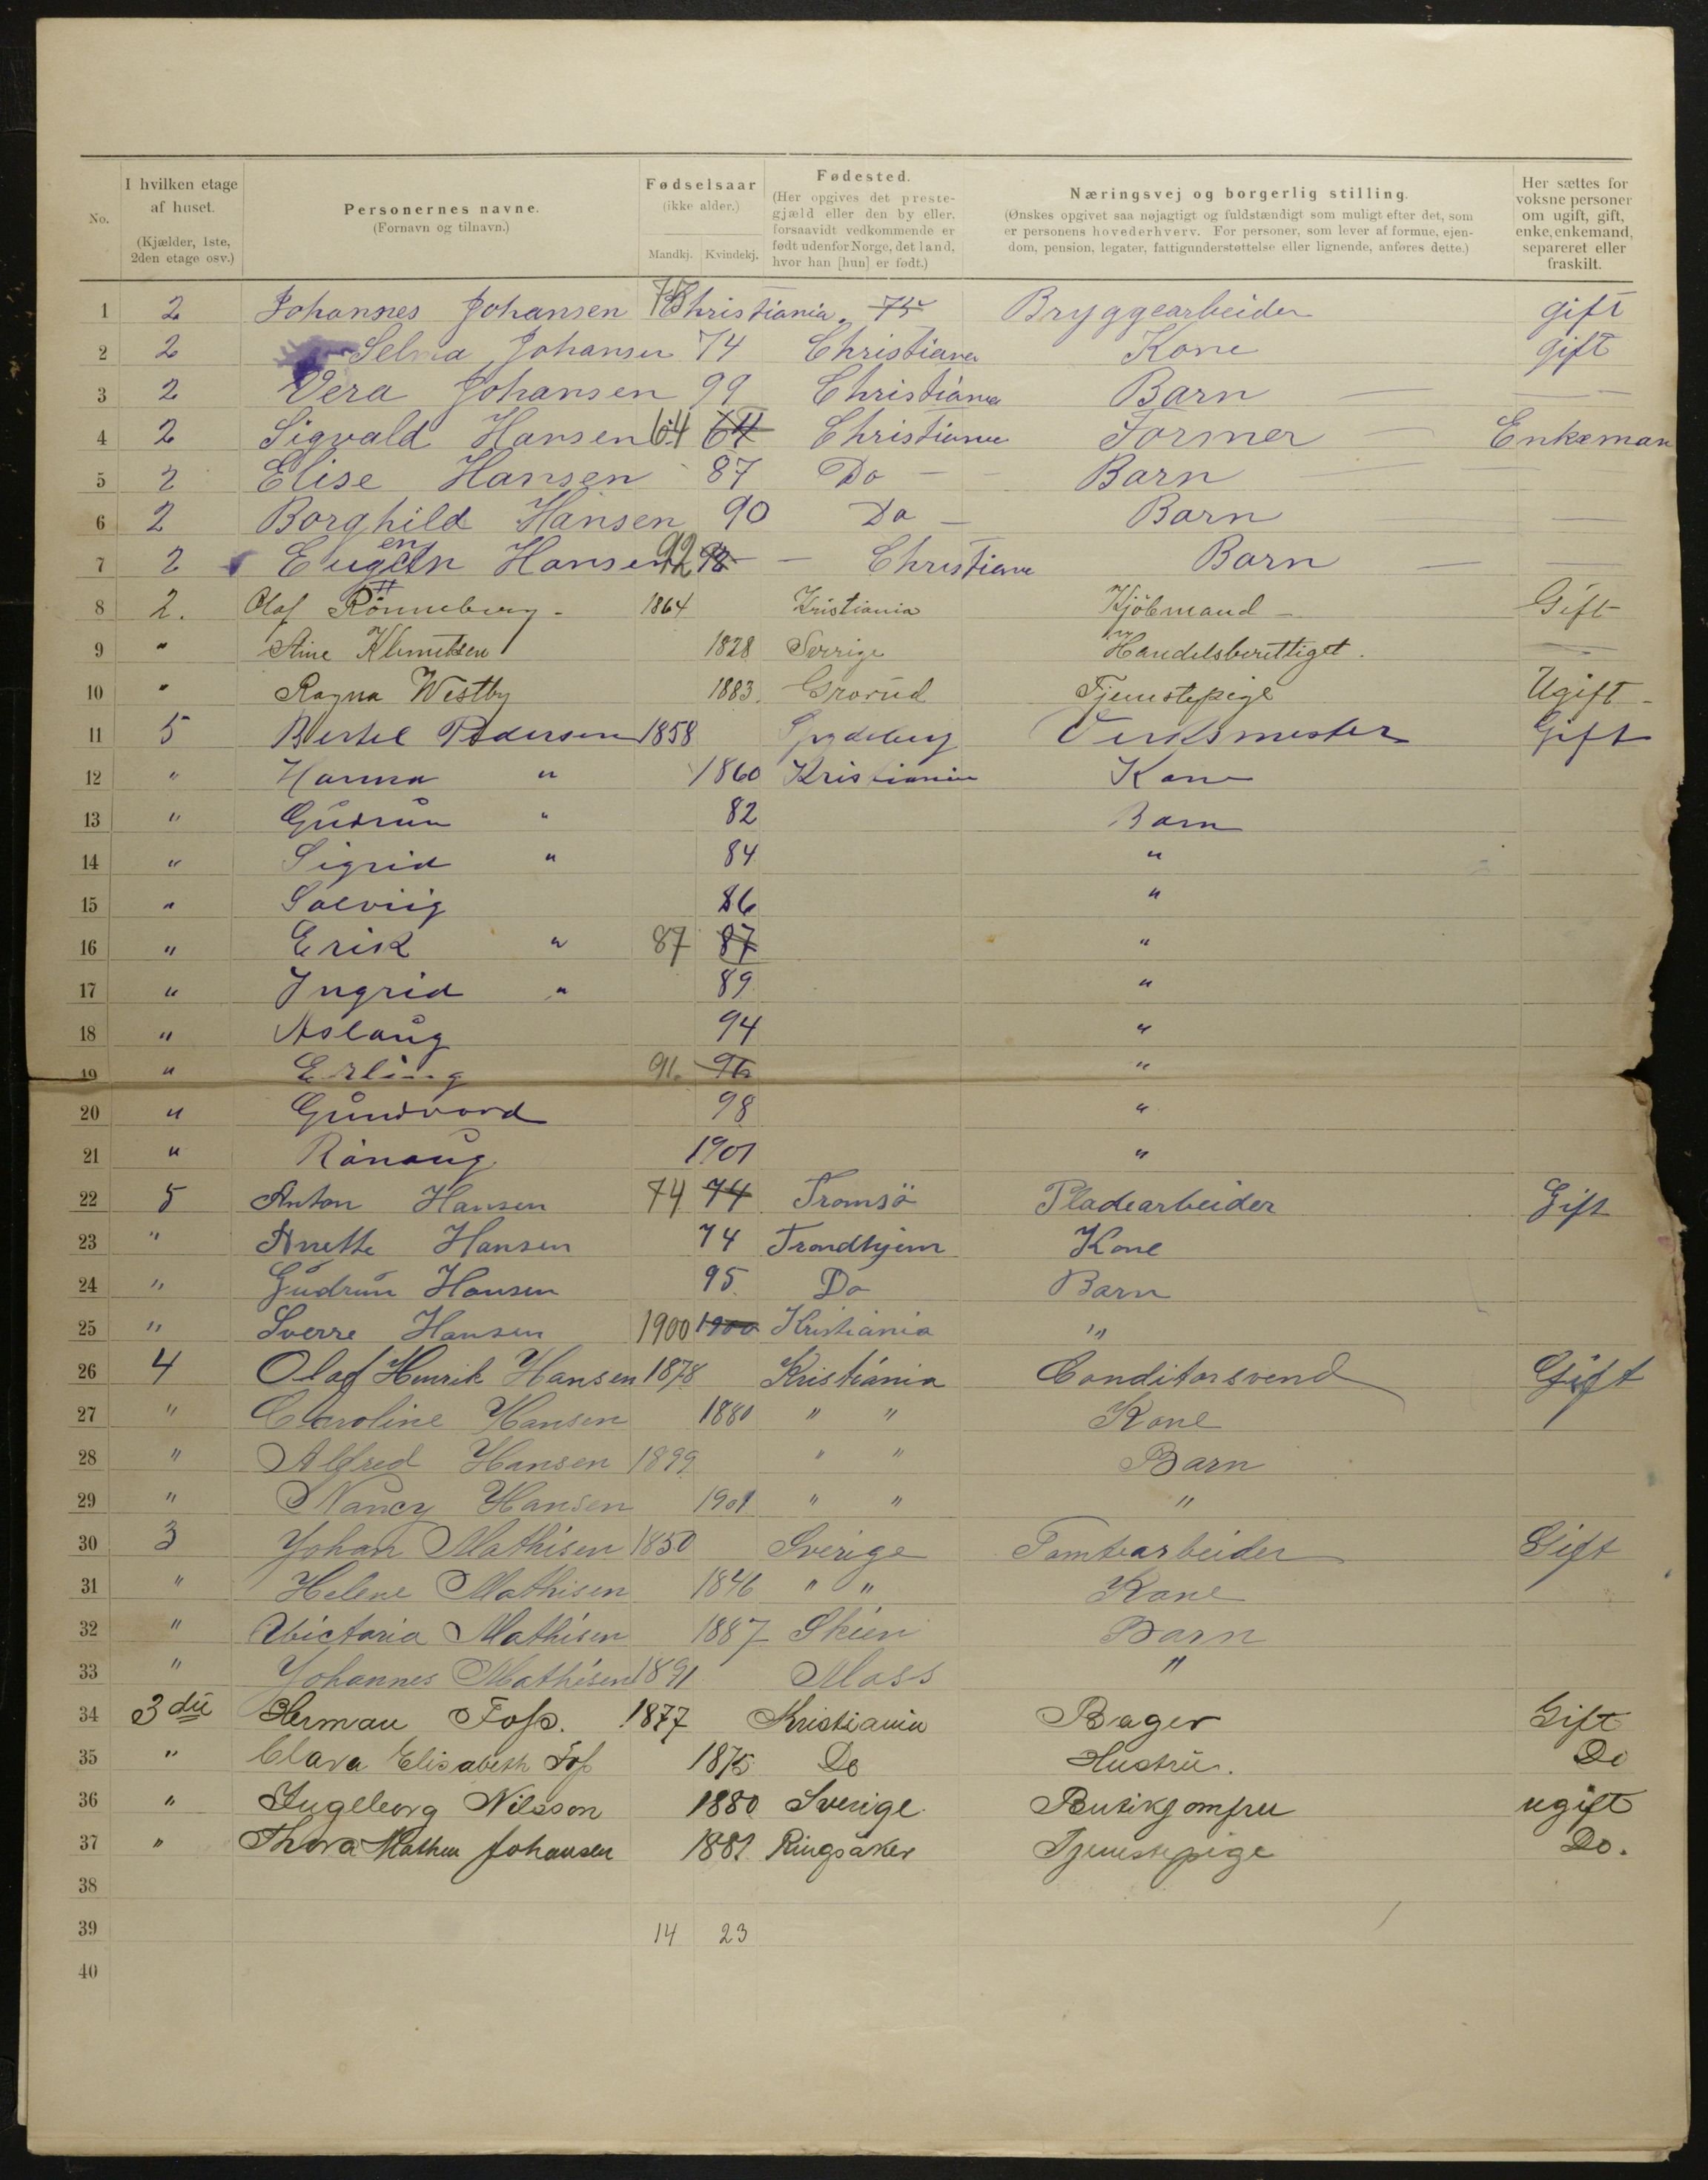 No.
I hvilken etage af huset.
(Kjælder, 1ste, 2den etage osv.)
Personernes navne.
(Fornavn og tilnavn.)
Fødselsaar
(ikke alder.)
Mandkj. Kvindekj.
Fødested.
(Her opgives det prestegjæld eller den by eller, forsaavidt vedkommende er født udenfor Norge, det land, hvor han [hun] er født.)
Næringsvej og borgerlig stilling.
(Ønskes opgivet saa nøjagtigt og fuldstændigt som muligt efter det, som er personens hovederhverv. For personer, som lever af formue, ejendom, pension, legater, fattigunderstøttelse eller lignende, anføres dette.)
Her sættes for voksne personer om ugift, gift, enke, enkemand, separeret eller fraskilt.
1 2 Johannes Johansen 75 Christiania. 75 Bryggearbeider gift
2 2 Selma Johansen 74 Christiania Kone gift
3 2 Vera Johansen 99 Christiania Barn — —
4 2 Sigvald Hansen 64 64 Christiania Former — Enkeman
5 2 Elise Hansen 87 Do — Barn — —
6 2 Borghild Hansen 90 Do — Barn —
7 2 Eugen Hansen 92 92 — Christiania Barn — —
8 2. Olaf Rönneberg - 1864 Kristiania Kjöbmand — Gift
9 " Aine Klemetsen 1828 Sverrige Handelsberettiget. —
10 " Ragna Westby 1883. Grorud Tjenestepige Ugift -
11 5 Bertel Pedersen 1858 Spydeberg Verksmester Gift
12 " Hanna " 1860 Kristiania Kone
13 " Gudrun " 82 Barn
14 " Sigrid " 84 "
15 " Solveig 86 "
16 " Erik " 87 87 "
17 " Ingrid " 89 "
18 " Aslaug 94 "
19 " Erling 96 96 "
20 " Gundvord 98 "
21 " Ranaug 1901 "
22 5 Anton Hansen 74 74 Tromsö Pladearbeider Gift
23 " Anette Hansen 74 Trondhjem Kone
24 " Gudrun Hansen 95 Do Barn
25 " Sverre Hansen 1900 1900 Kristiania "
26 4 Olaf Henrik Hansen 1878 Kristiania Conditorsvend Gift
27 " Caroline Hansen 1880 " " Kone
28 " Alfred Hansen 1899 " " Barn
29 " Nancy Hansen 1901 " " "
30 3 Johan Mathisen 1850 Sverige Tomtearbeider Gift
31 " Helene Mathisen 1846 " " Kone
32 " Victoria Mathisen 1887 Skien Barn
33 " Johannes Mathisen 1891 Moss "
34 3die Herman Foss. 1877 Kristiania Bager Gift
35 " Clara Elisabeth Foss 1875 Do Hustru. Do
36 " Ingeborg Nilsson 1880 Sverige Butikjomfru ugift
37 " Thora Mathea Johansen 1881 Ringsaker Tjenestepige Do.
38
39 14 23
40